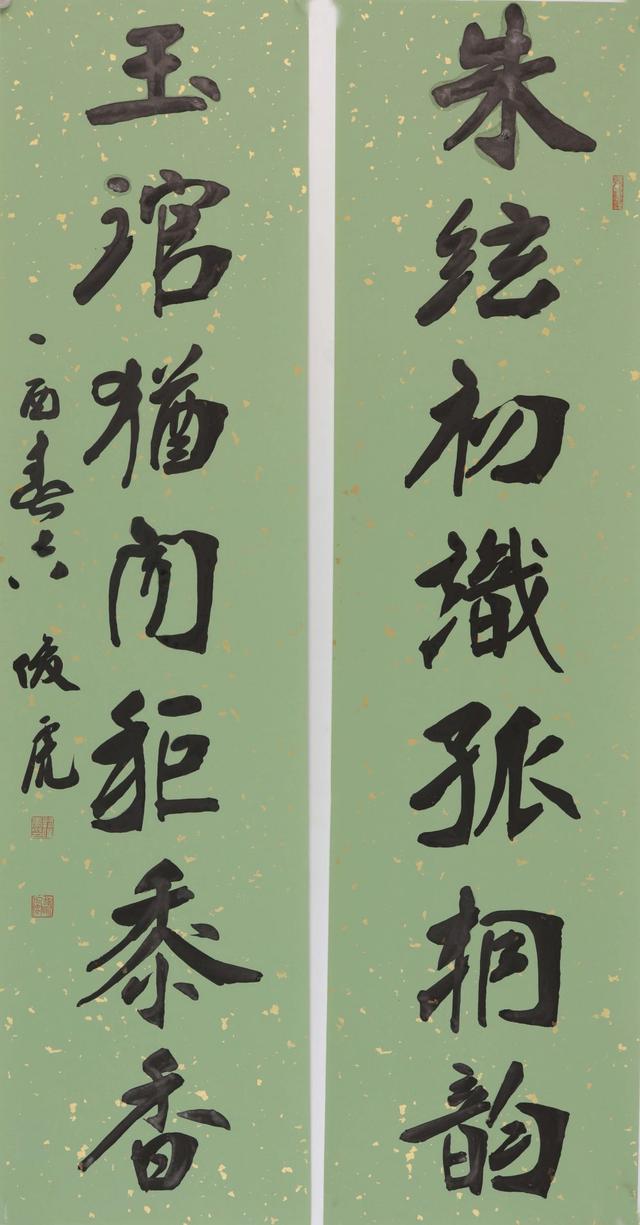 朱絃初識孤桐韻
玉琯猶聞秬黍香
酉春 俊虎